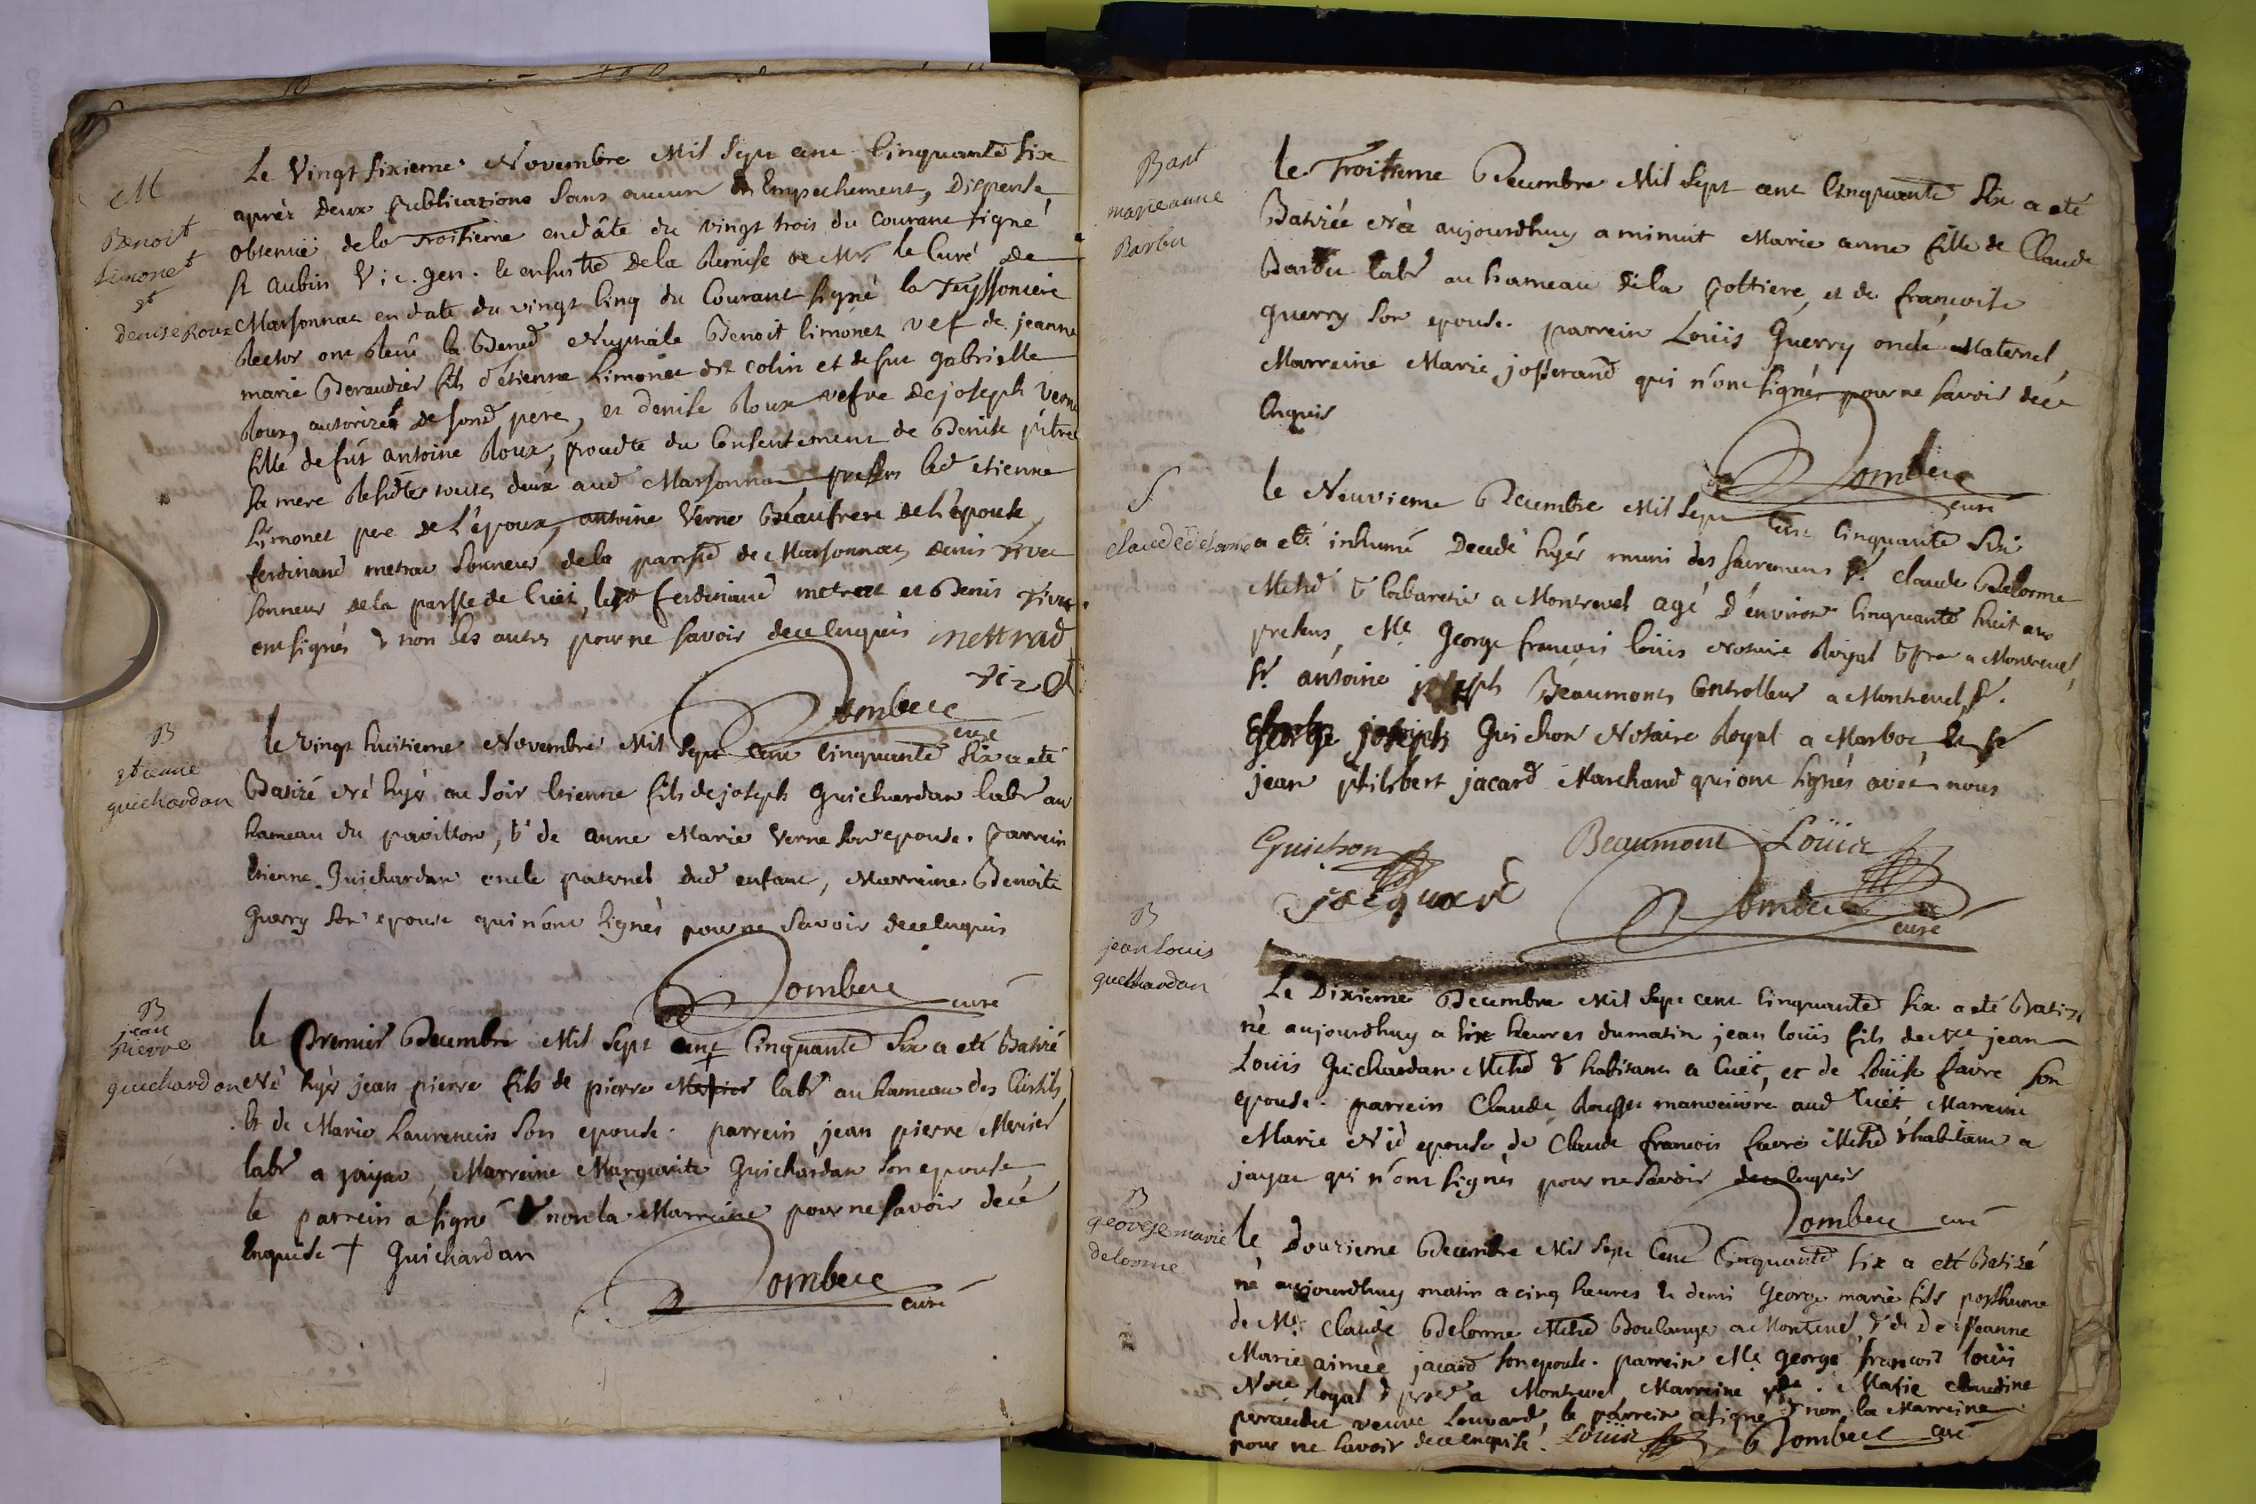 M
Benoit
Limonet
et
denise Roux
Le Vingt sixieme Novembre Mil Sept cent Cinquante six
aprés deux publications sans aucun Empechement, Dispense
obtenüe de la troisieme en dâte du vingt trois du courant signé
st aubin Vic. gen. le ensuitte de la Remise de Mr le Curé de
Marsonnas en date du vingt cinq du Courant signé la Teyssoniere
Rector ont Recû la Bened Nuptiale Benoit Limonet vef de jeanne
marie Beraudier fils d'étienne Limonet dit colin et de fue gabrielle
Roux, autorizé de sond pere, et denise Roux vefve de joseph Verne
fille de fût antoine Roux, procedte du Consentement de Denise pitre
sa mere Residtes toutes deux aud Marsonnas presens led etienne
Limonet pere de L'epoux, antoine Verne Beaufrere de l'epouse,
ferdinand metras sonneur de la parsse de Marsonnas, denis vivet
sonneur de la parsse de Cuet, led ferdinand metras et Denis vivet
ont signés & non les autres pour ne savoir de ce enquis mettrad
vivet
Dombeuc
curé
B
etienne
guichardan
le vingt huitieme Novembre Mil Sept cent Cinquante Six a eté
Batizé Né hyer au soir Etienne fils de joseph Guichardan labr au
hameau du pavillon, & de anne Marie Verne son epouse. Parrein
Etienne Guichardan oncle paternel dud enfant, Marreine Benoite
Guerry son epouse qui n'ont signés pour ne savoir de ce enquis
Dombeuc
curé
B
jean
pierre
guichardan
le Premier Decembre Mil Sept cent Cinquante Six a eté Batizé
Né hyer jean pierre fils de pierre labr au hameau des
Et de Marie Laurencin son epouse. parrein jean pierre Merier
labr a jayac, Marreine Marguerite Guichardan son epouse
le parrein a signé & non la Marreine pour ne savoir de cé
Enquise + Guichardan
Dombeuc
curé
Bapt
marie anne
Barbu
le Troisieme Decembre Mil Sept cent Cinquante Six a eté
Batizée Née aujourdhuy a minuit Marie anne fille de Claude
Barbu labr au hameau de la Gottiere, et de francoise
Guerry son epouse. parrein Loüis Guerry oncle Maternel
Marreine Marie josserand qui n'ont signés pour ne savoir de cé
Enquis
Dombeuc
curé
S
claude delorme
le Neuvieme Decembre Mil Sept Cent Cinquante Six
a eté inhumé Decedé hyér muni des sacremens sr. Claude Delorme
Mchd & Cabaretier a Montrevel agé d'environ Cinquante huit ans
presens, Me. George françois loüis Notaire Royal & pror a Montrevel,
sr. antoine joseph Beaumont Controlleur a Montrevel, sr.
George joseph Guichon Notaire Royal a Marboz, Et sr
jean philibert jacard Marchand qui ont signés avec nous
Guichon Beaumont Loüis
jacquard Dombeuc
curé
B
jean Louis
guichardan
Le Dixieme Decembre Mil Sept cent Cinquante Six a eté Batizé
né aujourdhuy a six heures du matin jean loüis fils de Me jean
Loüis Guichardan Mchd & habitant a Cuët, et de Loüise favre son
epouse. parrein Claude manoeuvre aud Cuët, Marreine
Marie Nid epouse de Claude francois favre Mchd & habitant a
jayac qui n'ont signés pour ne savoir de ce enquis
Dombeuc curé
B
george marie
delorme
le Douzieme Decembre Mil Sept Cent Cinquante six a eté Batizé
né aujourdhuy matin a cinq heures Et demi George marie fils posthume
de Mr. Claude Delorme Mchd Boulanger a Montrevel, & de De jeanne
Marie aimée jacard son epouse. parrein Me. george françois loüis
Nore Royal & pror a Montrevel, Marreine De. Marie Claudine
veuve Louvard, le parrein a signé & non la Marreine
pour ne savoir de ce enquise. Loüis Dombeuc curé